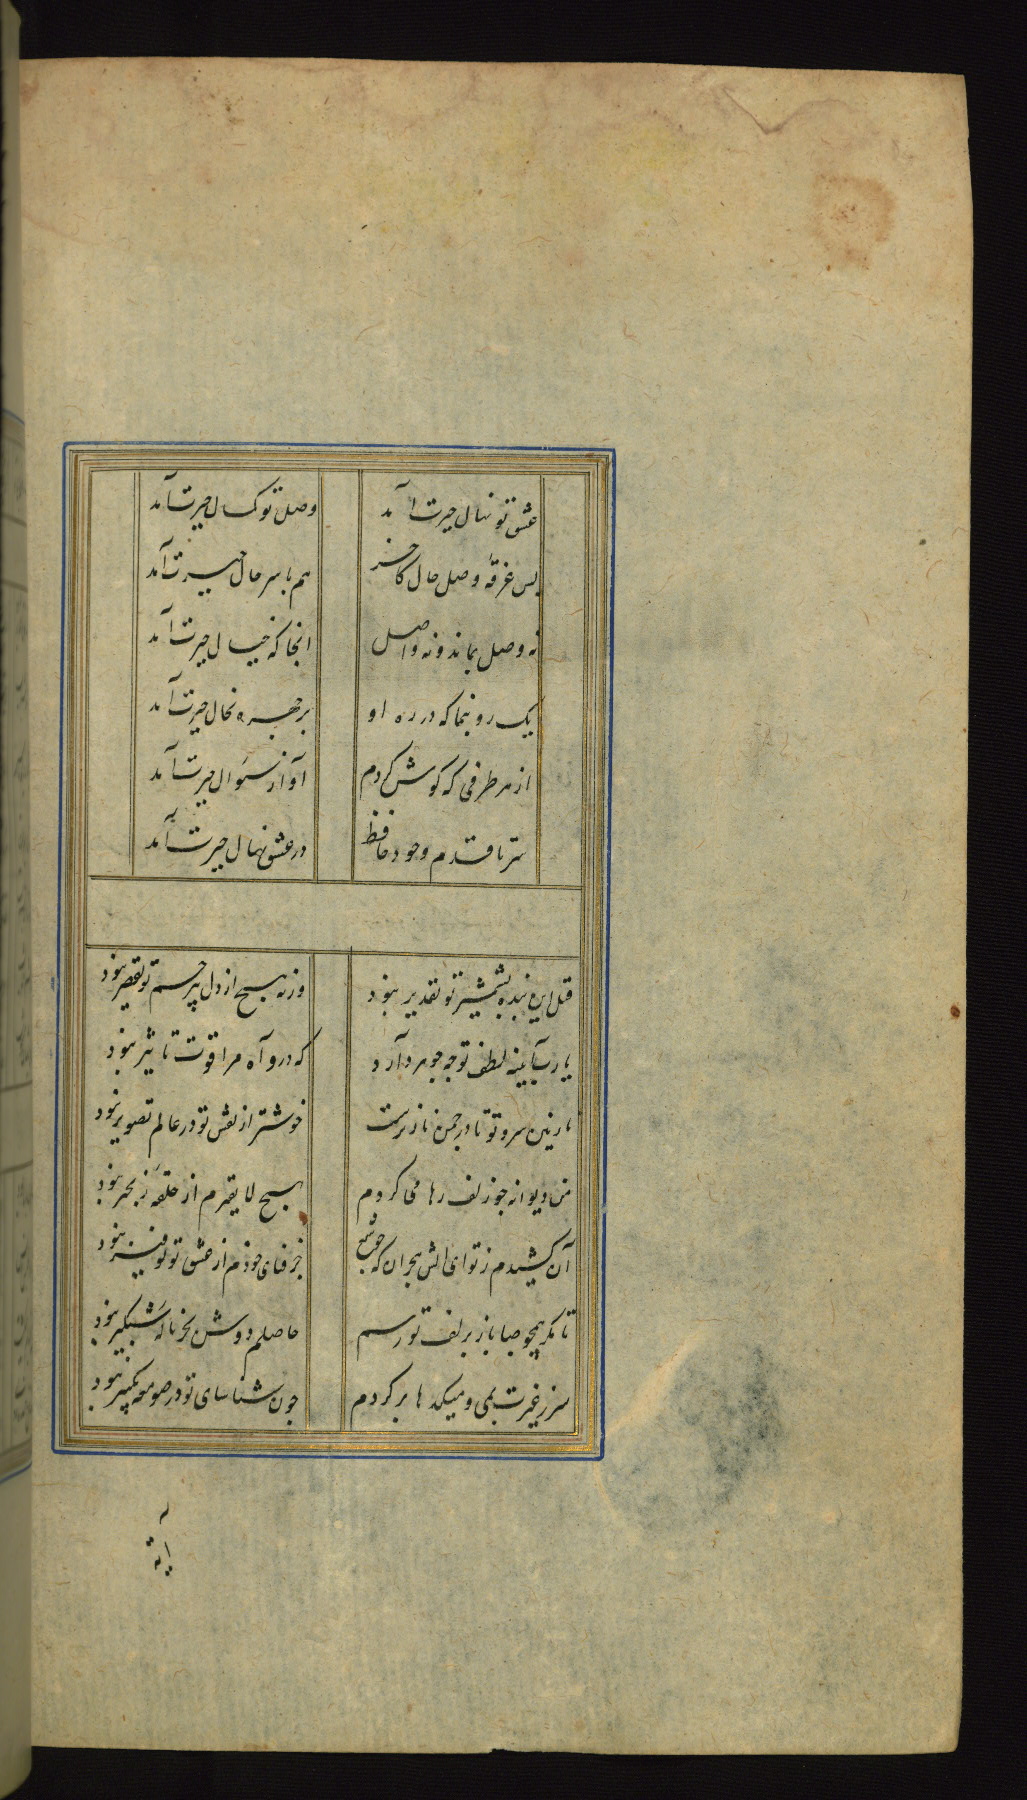 عشق تو نهال حیرت آمد وصل تو کمال حیرت آمد
بس غرقهٔ وصل حال کاخر هم با سر حال حیرت آمد
نه وصل بماند و نه واصل انجا که خیال حیرت آمد
یک رو بنما که در ره او بر چهره نخال حیرت آمد
از هر طرفی که کوش کردم آواز سئوال حیرت آمد
سر تا قدم وجود حافظ در عشق نهال حیرت آمد
قتل این بنده بشمشیر تو تقدیر نبود ورنه هیچ از دل بیرحم تو تقصیر نبود
یا رب آیینه لطف تو چه جوهر دارد که درو آه مرا قوت تاثیر نبود
نازنین سرو تو تا در چمن ناز نرست خوشتر از نقش تو در عالم تصویر نبود
من دیوانه چو زلف رها می کردم هیچ لایقترم از حلقهٔ زنجیر نبود
آن کشیدم ز تو ای اتش هجران که چو شمع جز فنای خودم از عشق تو نبود
تا مکر همچو صبا باز بزلف تو رسم حاصلم دوش بجز نالهٔ شبکیر نبود
سر ز غیرت میکدها بر کردم چون شناسای تو در صومعه یک پیر نبود
ایة